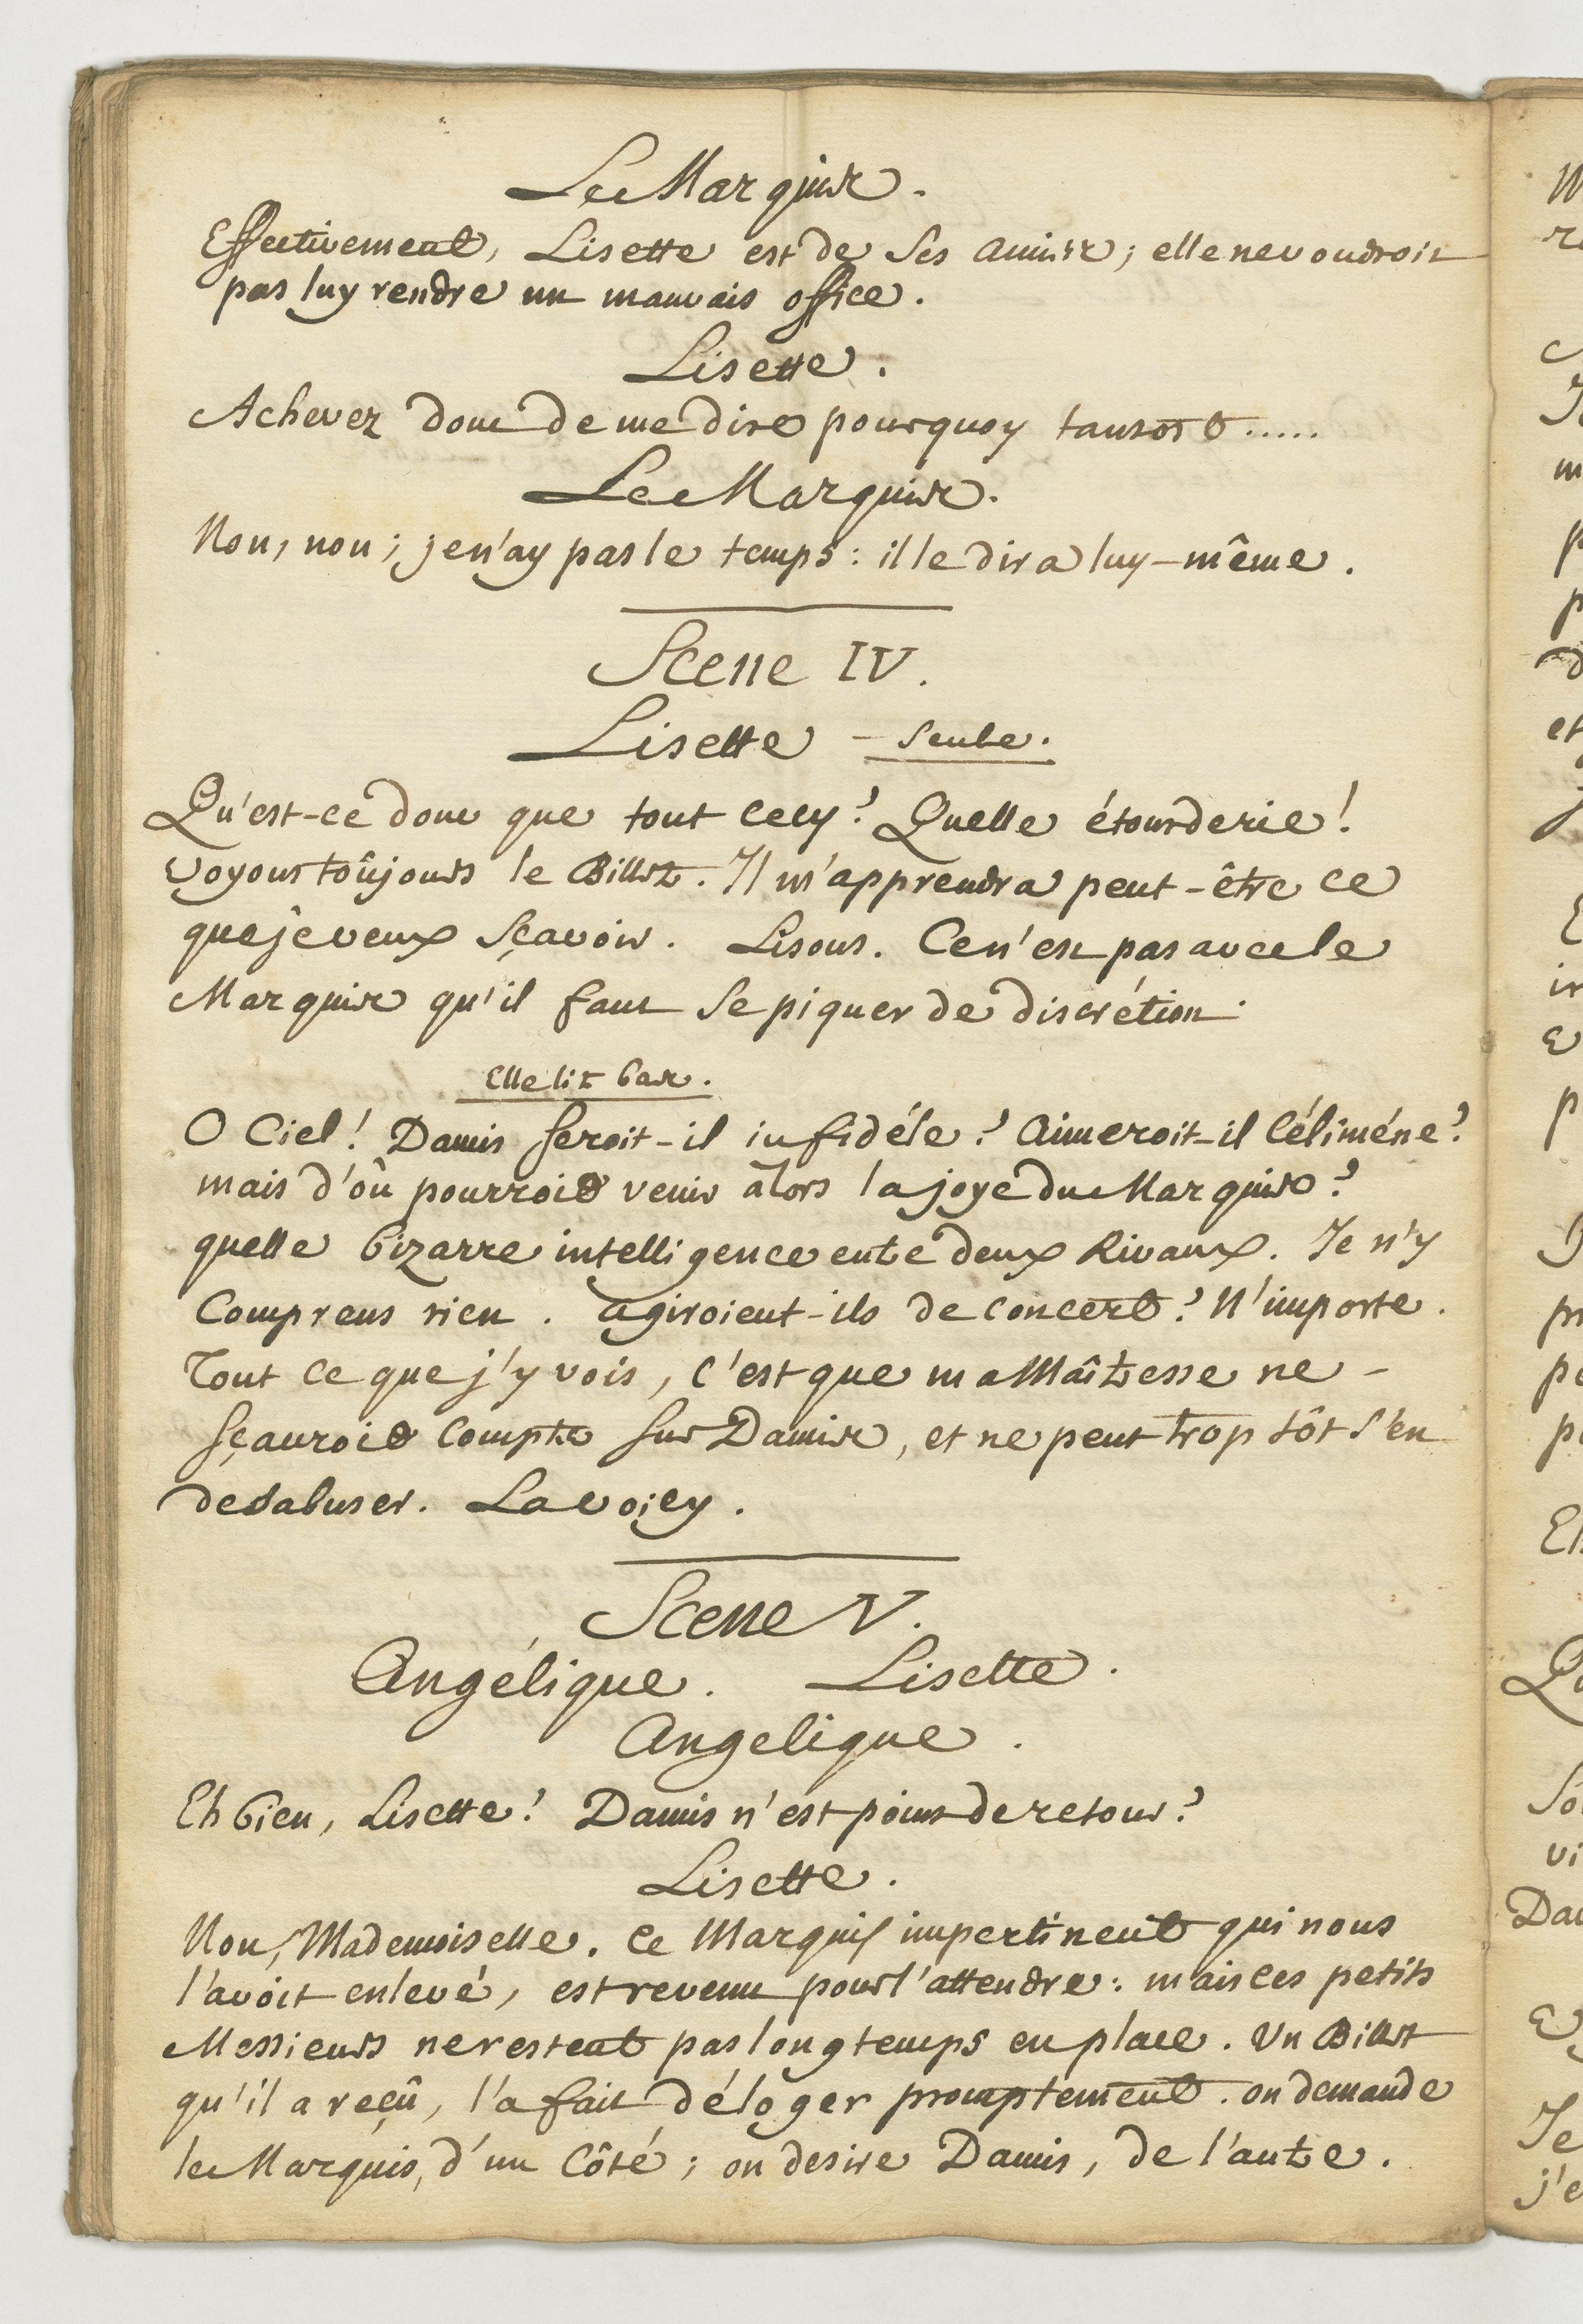 Le Marquis.
Effectivement, Lisette est de ses amis; elle ne voudroit
pas luy rendre un mauvais office.
Lisette.
Achevez donc de me dire pourquoy tantost.....
Le Marquis.
Non, non; je n'ay pas le temps: il le dira luy-même.
Scene IV.
Lisette - seule.
Qu'est-ce donc que tout cecy? Quelle étourderie!
voyons toûjours le Billet. Il m'apprendra peut-être ce
que je veux sçavoir. Lisons. Ce n'est pas avec le
Marquis qu'il faut se piquer de discrétion.
Elle lit bas.
O Ciel! Damis seroit-il infidéle? Aimeroit-il Céliméne?
mais d'où pourroit venir alors la joye du Marquis?
quelle bizarre intelligence entre deux Rivaux. Je n'y
Comprens rien. agiroient-ils de concert? N'importe.
Tout ce que j'y vois, c'est que ma Maîtresse ne -
sçauroit compter sur Damis, et ne peut trop tôt s'en
desabuser. La voicy.
Scene V.
Angélique. Lisette.
Angelique.
Eh bien, Lisette! Damis n'est point de retour?
Lisette.
Non, Mademoiselle. Ce Marquis impertinent qui nous
l'avoit enlevé, est revenu pour l'attendre: mais ces petits
Messieurs ne restent pas longtemps en place. Un Billet
qu'il a reçû, l'a fait déloger promptement. on demande
le Marquis, d'un Côté; on desire Damis, de l'autre.